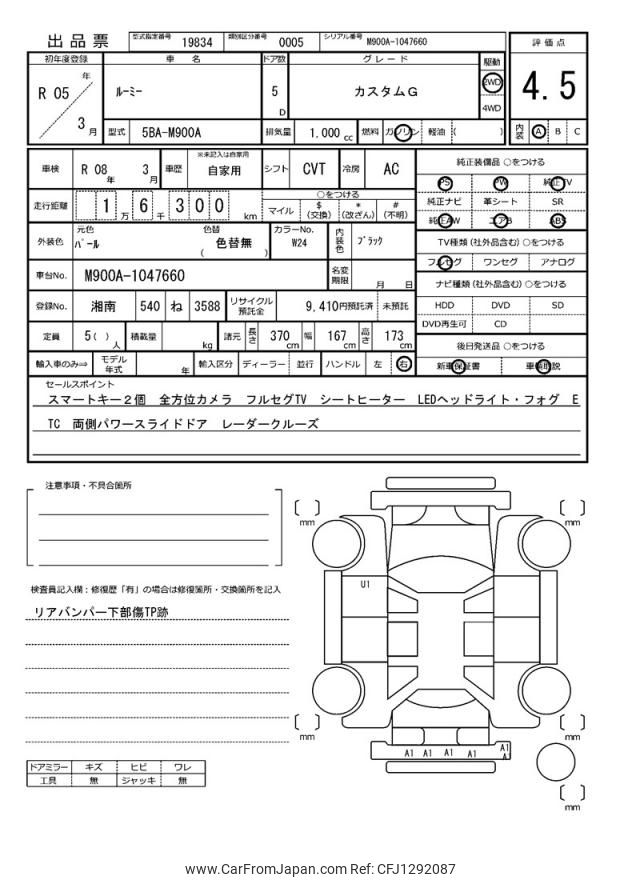 出品票 型式指定番号 19834 類別区分番号 0005 シリアル番号 M900A-1047660
評価点
4.5
内装 A B C
初年度登録 車名 ドア数 グレード 駆動
R 05 年 3 月 ルーミー 5 D カスタムG 2WD 4WD
型式 5BA-M900A 排気量 1.000 cc 燃料 ガソリン 軽油 ( )
車検 R 08 年 3 月 車歴 ※未記入は自家用 自家用 シフト CVT 冷房 AC
走行距離 1 万 6 千 3 0 0 km ○をつける
マイル $ (交換) * (改ざん) # (不明)
外装色 元色 パール 色替 色替無 ( ) カラーNo. W24 内装色 ブラック
車台No. M900A-1047660 名変期限 月 日
登録No. 湘南 540 ね 3588 リサイクル預託金 9,410円預託済 未預託
定員 5( ) 人 積載量 kg 諸元 長さ 370 cm 幅 167 cm 高さ 173 cm
輸入車のみ⇒ モデル年式 年 輸入区分 ディーラー 並行 ハンドル 左 右
純正装備品 ○をつける
PS PW 純正TV
純正ナビ 革シート SR
純正AW エアB ABS
TV種類 (社外品含む) ○をつける
フルセグ ワンセグ アナログ
ナビ種類 (社外品含む) ○をつける
HDD DVD SD
DVD再生可 CD
後日発送品 ○をつける
新車保証書 車輌取説
セールスポイント
スマートキー2個 全方位カメラ フルセグTV シートヒーター LEDヘッドライト・フォグ E
TC 両側パワースライドドア レーダークルーズ
注意事項・不具合箇所
検査員記入欄：修復歴「有」の場合は修復箇所・交換箇所を記入
リアバンパー下部傷TP跡
ドアミラー キズ ヒビ ワレ
工具 無 ジャッキ 無
mm mm
U1
mm mm
A1 A1 A1 A1 A1
mm
www.CarFromJapan.com Ref: CFJ1292087